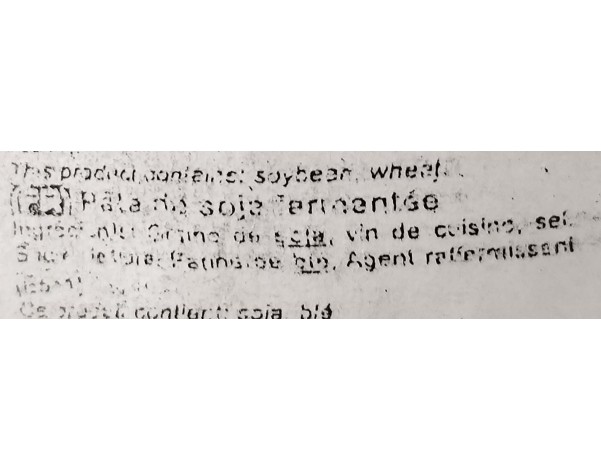 This product contains: soybean, wheat.
Pâte de soja fermentée
Ingrédients: Graine de soja, vin de cuisine, sel,
Farine de blé, Agent raffermissant
Ce produit contient: soja, blé